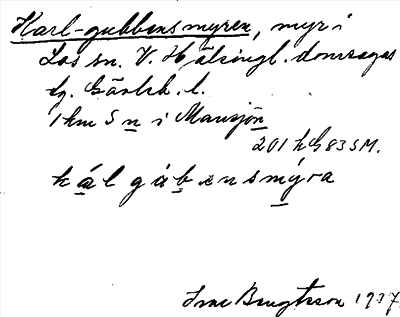 Karl-gubbensmyren, myr i
Los sn. V. Hälsingl. domsagas
tg. Gävleb. l.
1 km S n i Mansjön
201 h G 83 SM.
kál gábensmýra
Bengtsson 1937